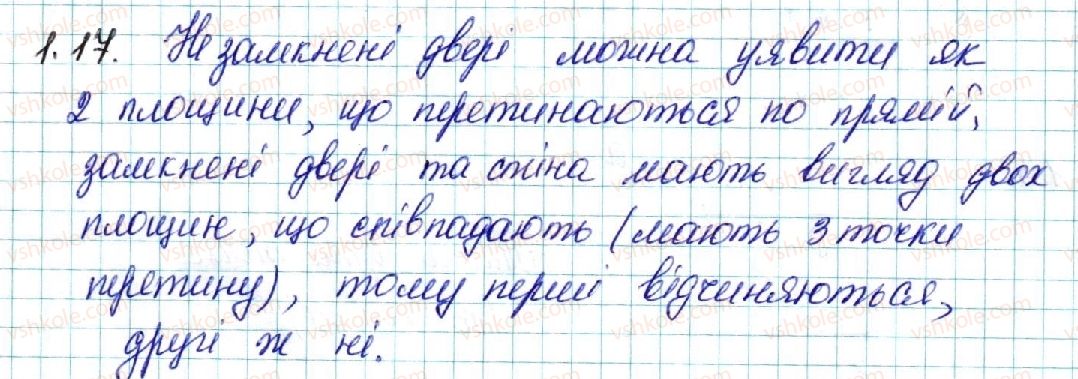 1.17. Не замкнені двері можна уявити як
2 площини, що перетинаються по прямій,
замкнені двері та стіна мають вигляд двох
площин, що співпадають (мають 3 точки
перетину), тому перші відчиняються,
другі ж ні.